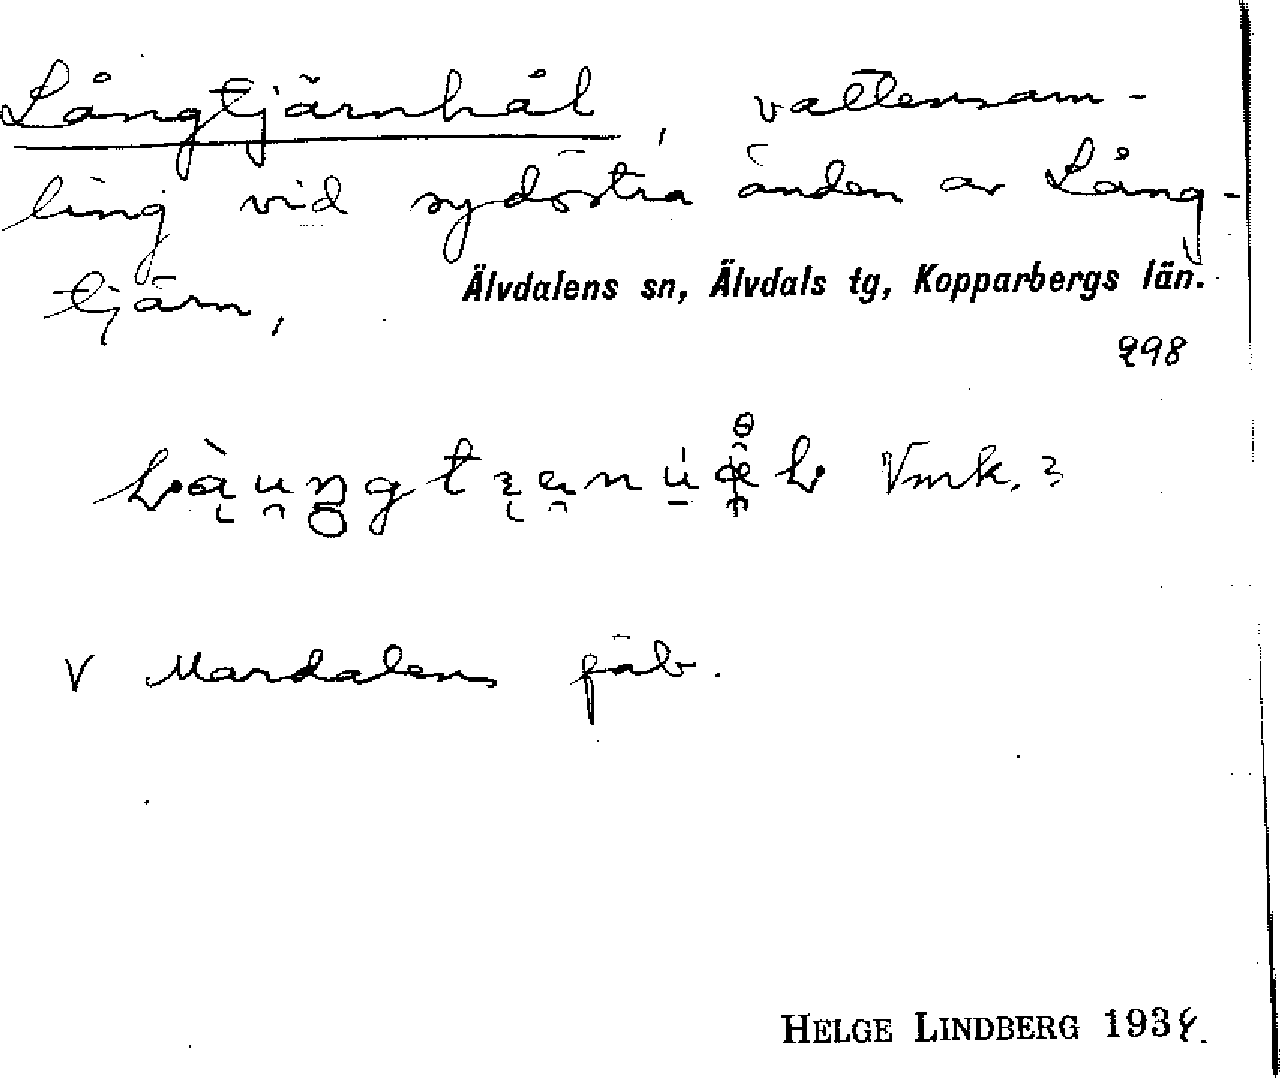 Långtjärnhål, vattensam-
ling vid sydöstra änden av Lång-
tjärn,
Älvdalens sn, Älvdals tg, Kopparbergs län.
298
Vmk. 3
V Mardalens fäb.
HELGE LINDBERG 1934.